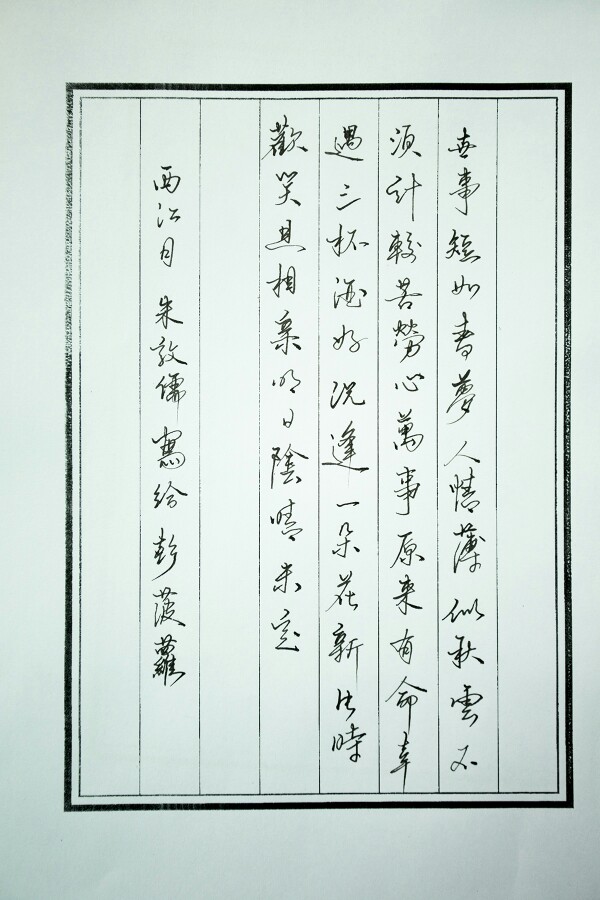 世事短如春夢人情薄似秋雲不
須計較苦勞心萬事原來有命幸
遇三杯酒好況逢一朵花新片時
歡笑且相親明日陰晴未定
西江月 朱敦儒 寫給彭菠蘿